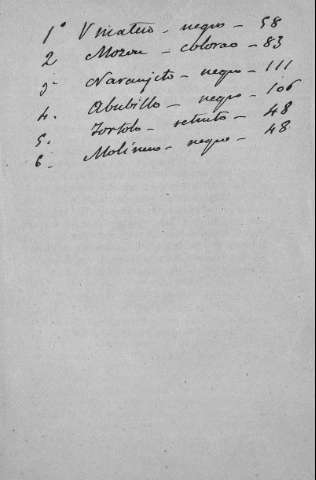 1º Vinatero - negro - 58
2 Mozon - colorao - 83
3º Naranjito - negro - 111
4. Abubillo - negro - 106
5. Tortolo - retinto - 48
6. Molinero - negro - 48